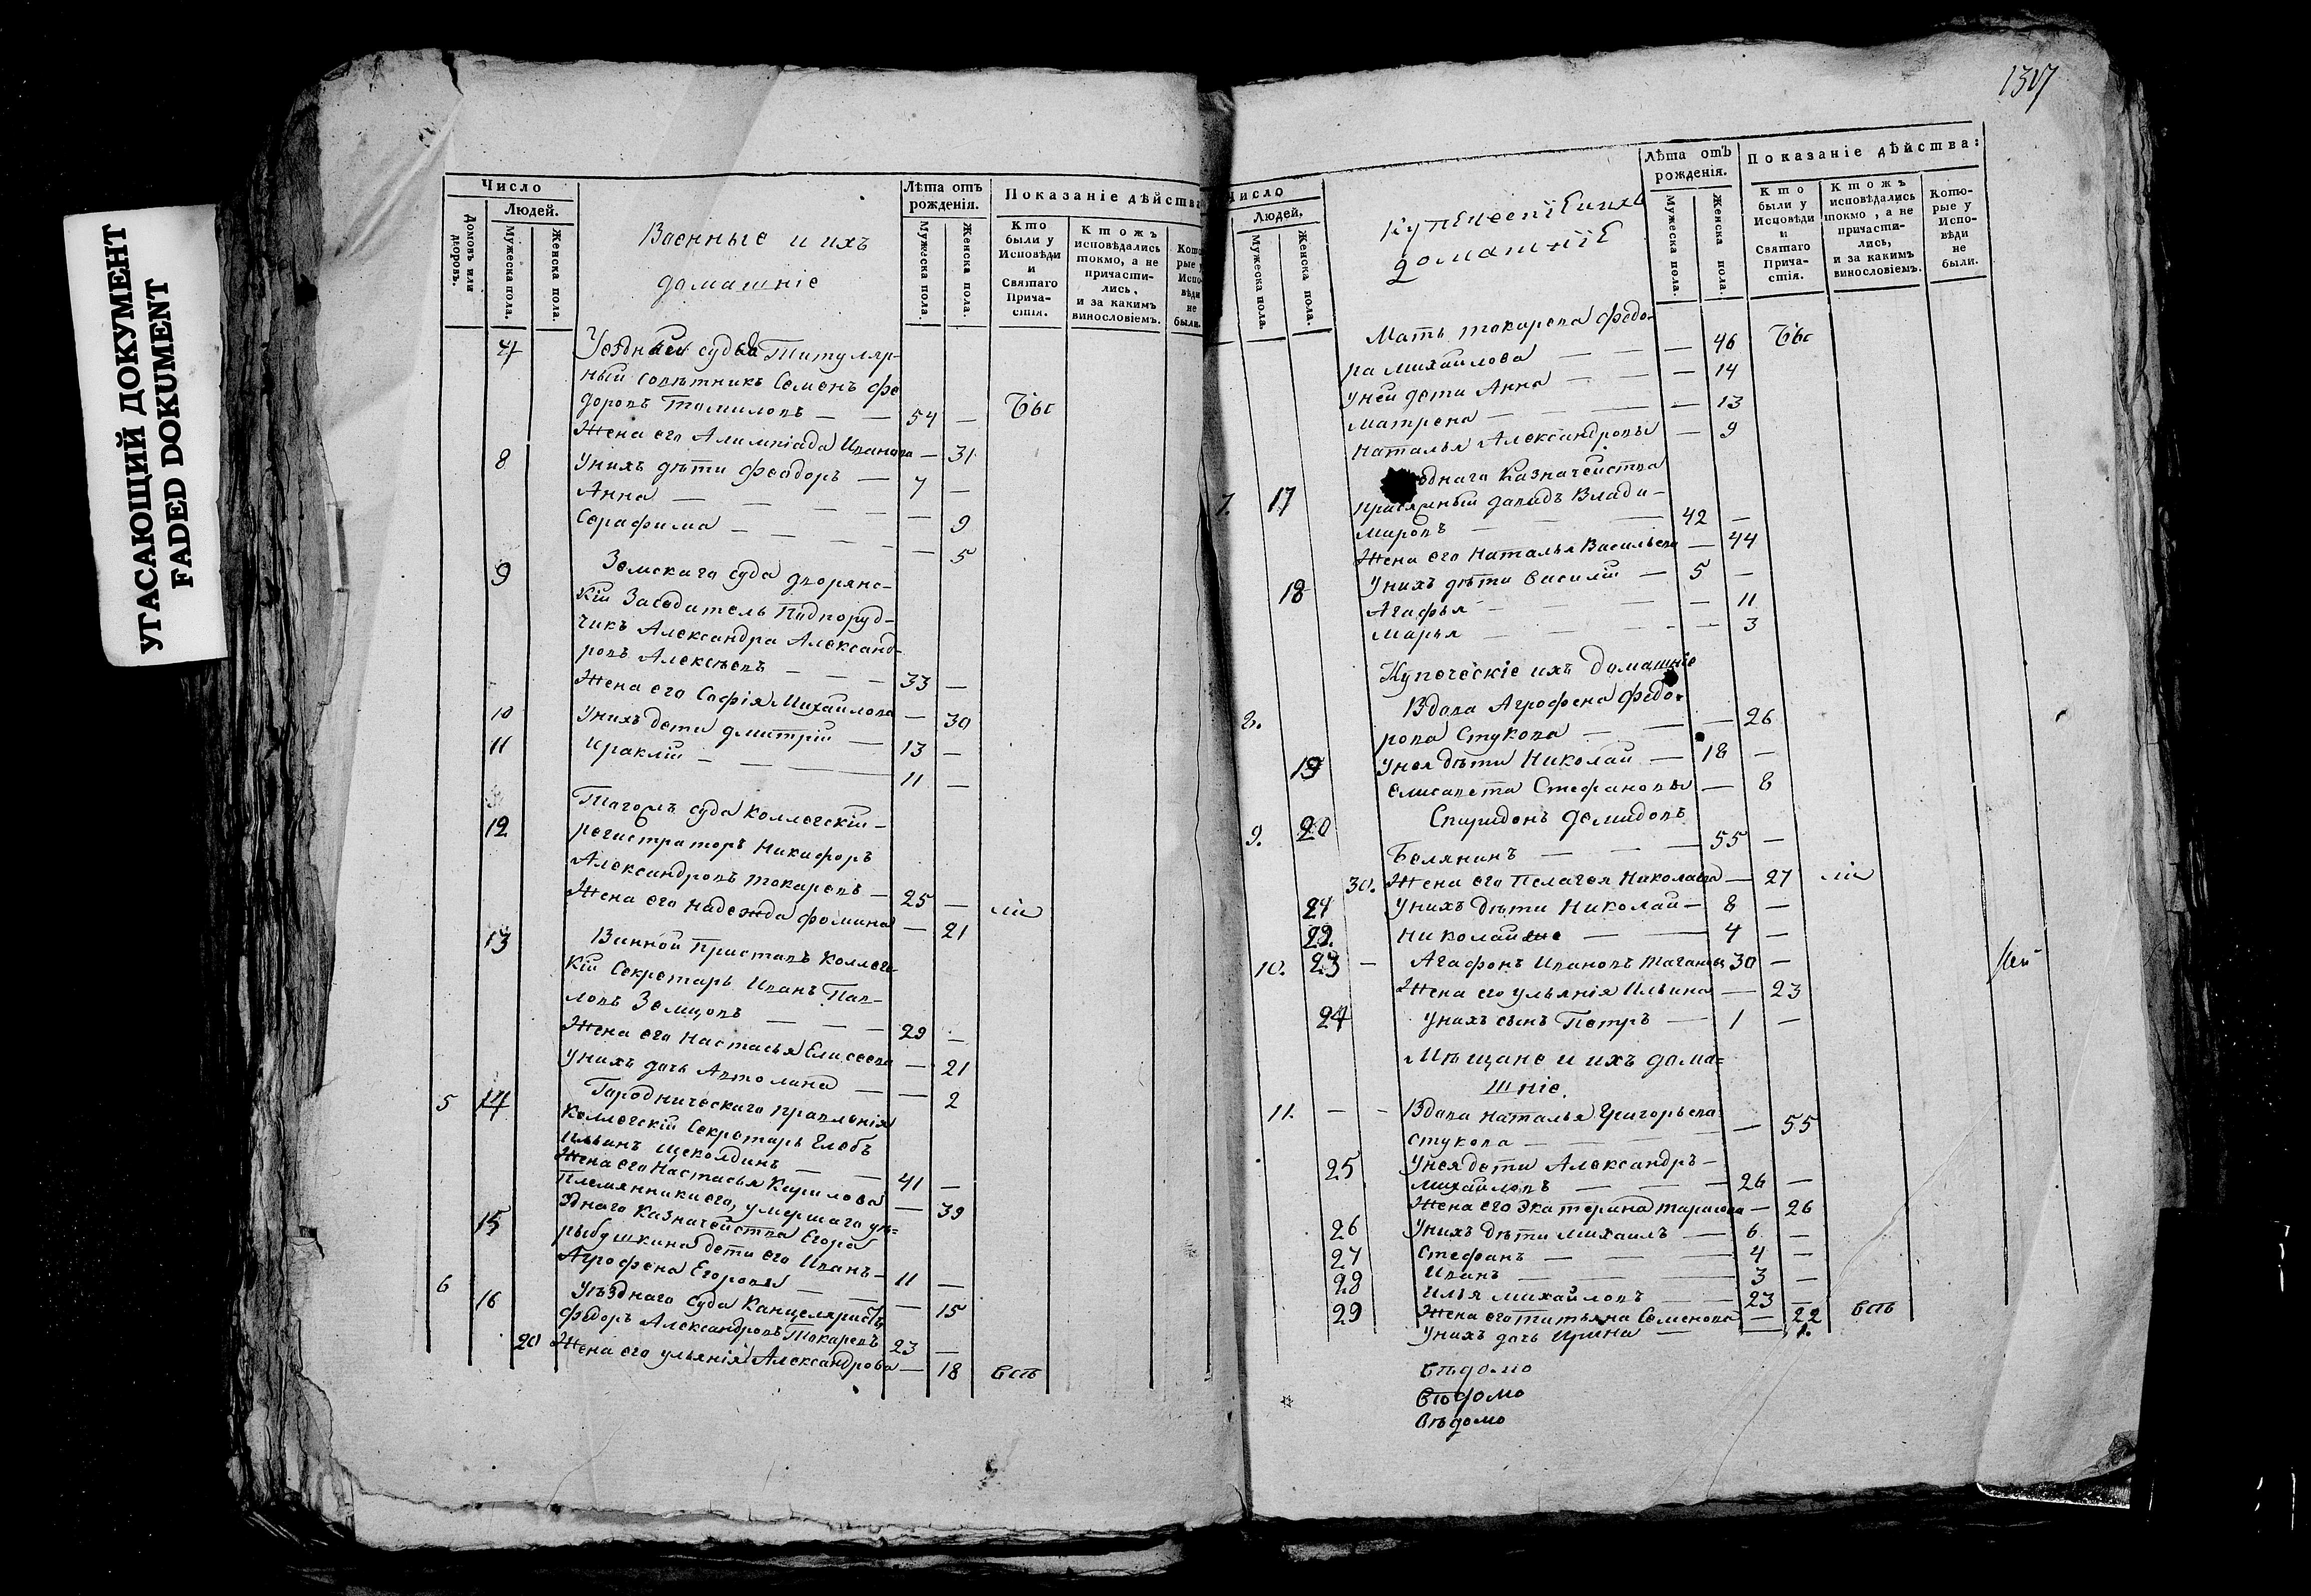 УГАСАЮЩИЙ ДОКУМЕНТ
FADED DOKUMENT
Число
Людей.
Домовъ или дворовъ.
Мужеска пола.
Женска пола.
Военные и ихъ
домашніе
Лѣта отъ рожденія.
Мужеска пола.
Женска пола.
Показаніе дѣйства
Кто были у Исповѣди и Святаго Прича- стія.
Ктожъ исповѣдались токмо, а не причасти- лись, и за какимъ винословіемъ.
Кото рые у Испо- вѣди не были.
7 Уездный судья Титуляр-
ный советникъ Семенъ Фе
доровъ Томиловъ — — 54 —
Жена его Алимпіада Иванова — 31
8 Унихъ дѣти Феодоръ — 7 —
Анна — — — — — 9
Серафима — — — — — 5
9 Земскаго суда дворянс-
кій Заседатель Подпоруд-
чикъ Александра Александ-
ровъ Алексѣевъ — — — 33 —
Жена его Софія Михайлова — 30
10 Унихъ дети Дмитрій — 13 —
11 Ираклій — — 11 —
12 Тагожъ суда Коллегскій-
регистраторъ Никифоръ
Александровъ Токаревъ — 25 —
Жена его Надежда Фомина — 21
13 Винной Приставъ Коллегс-
кій Секретарь Иванъ Пав-
ловъ Земцовъ — — — 29 —
Жена его Настасья Елисеева — 21
Унихъ дочь Автолина — — 2
5 14 Городническаго правленія
Коллегскій Секретарь Глебъ
Ильинъ Щеколдинъ — — 41 —
Жена его Настасья Кирилова — 39
Племянники его, умершаго уѣ-
зднаго Казначейства Егора
15 рыбушкина дети его Иванъ — 11 —
Агрофена Егоровы — — — 15
6 16 Уѣзднаго Суда Канцеляристъ
Федоръ Александровъ Токаревъ 23 —
20 Жена его Ульянія Александрова — 18
1317
Число
Людей.
Мужеска пола.
Женска пола.
домашніе
Лѣта отъ рожденія.
Мужеска пола.
Женска пола.
Показаніе дѣйства:
Кто были у Исповѣди и Святаго Прича- стія.
Ктожъ исповѣдались токмо, а не причасти- лись, и за какимъ винословіемъ.
Кото- рые у Испо- вѣди не были.
Мать токарева Федо-
ра Михайлова — — — 46
Уней дети Анна — — — 14
Матрена — — — — 13
Наталья Александровы — 9
7. 17 зднаго Казначейства
присяжный давидъ Влади-
мировъ — — — 42 —
Жена его Наталья Васильева — 44
18 Унихъ дѣти Василій — 5 —
Агафья — — — — 11
Марья — — — — 3
Купеческіе ихъ домашніе
8. Вдова Агрофена Федо-
рова Стукова — — — 26
19 Унея дѣти Николай — 18 —
Елисавета Стефановы — 8
9. 20 Спиридонъ Демидовъ
Белянинъ — — — 55 —
30. Жена его Пелагея Николаева — 27
21 Унихъ дѣти Николай — 8 —
22. Николай же — — 4 —
10. 23 — Агафонъ Ивановъ 30 —
Жена его ульянія Ильина — 23
24 Унихъ сынъ Петръ — 1 —
Мѣщане и ихъ дома=
шніе.
11. — — Вдова Наталья Григорьева
Стукова — — — — 55
25 Унея дети Александръ —
Михайловъ — — — 26 —
Жена его Экатерина Тарасова — 26
26 Унихъ дѣти Михаилъ — 6 —
27 Стефанъ — — — 4 —
28 Иванъ — — — 3 —
29 Илья Михайловъ — — 23 —
Жена его Татьяна Семенова — 22
Унихъ дочь Ирина — — 1.
Вѣдомо
Вѣдомо
Вѣдомо